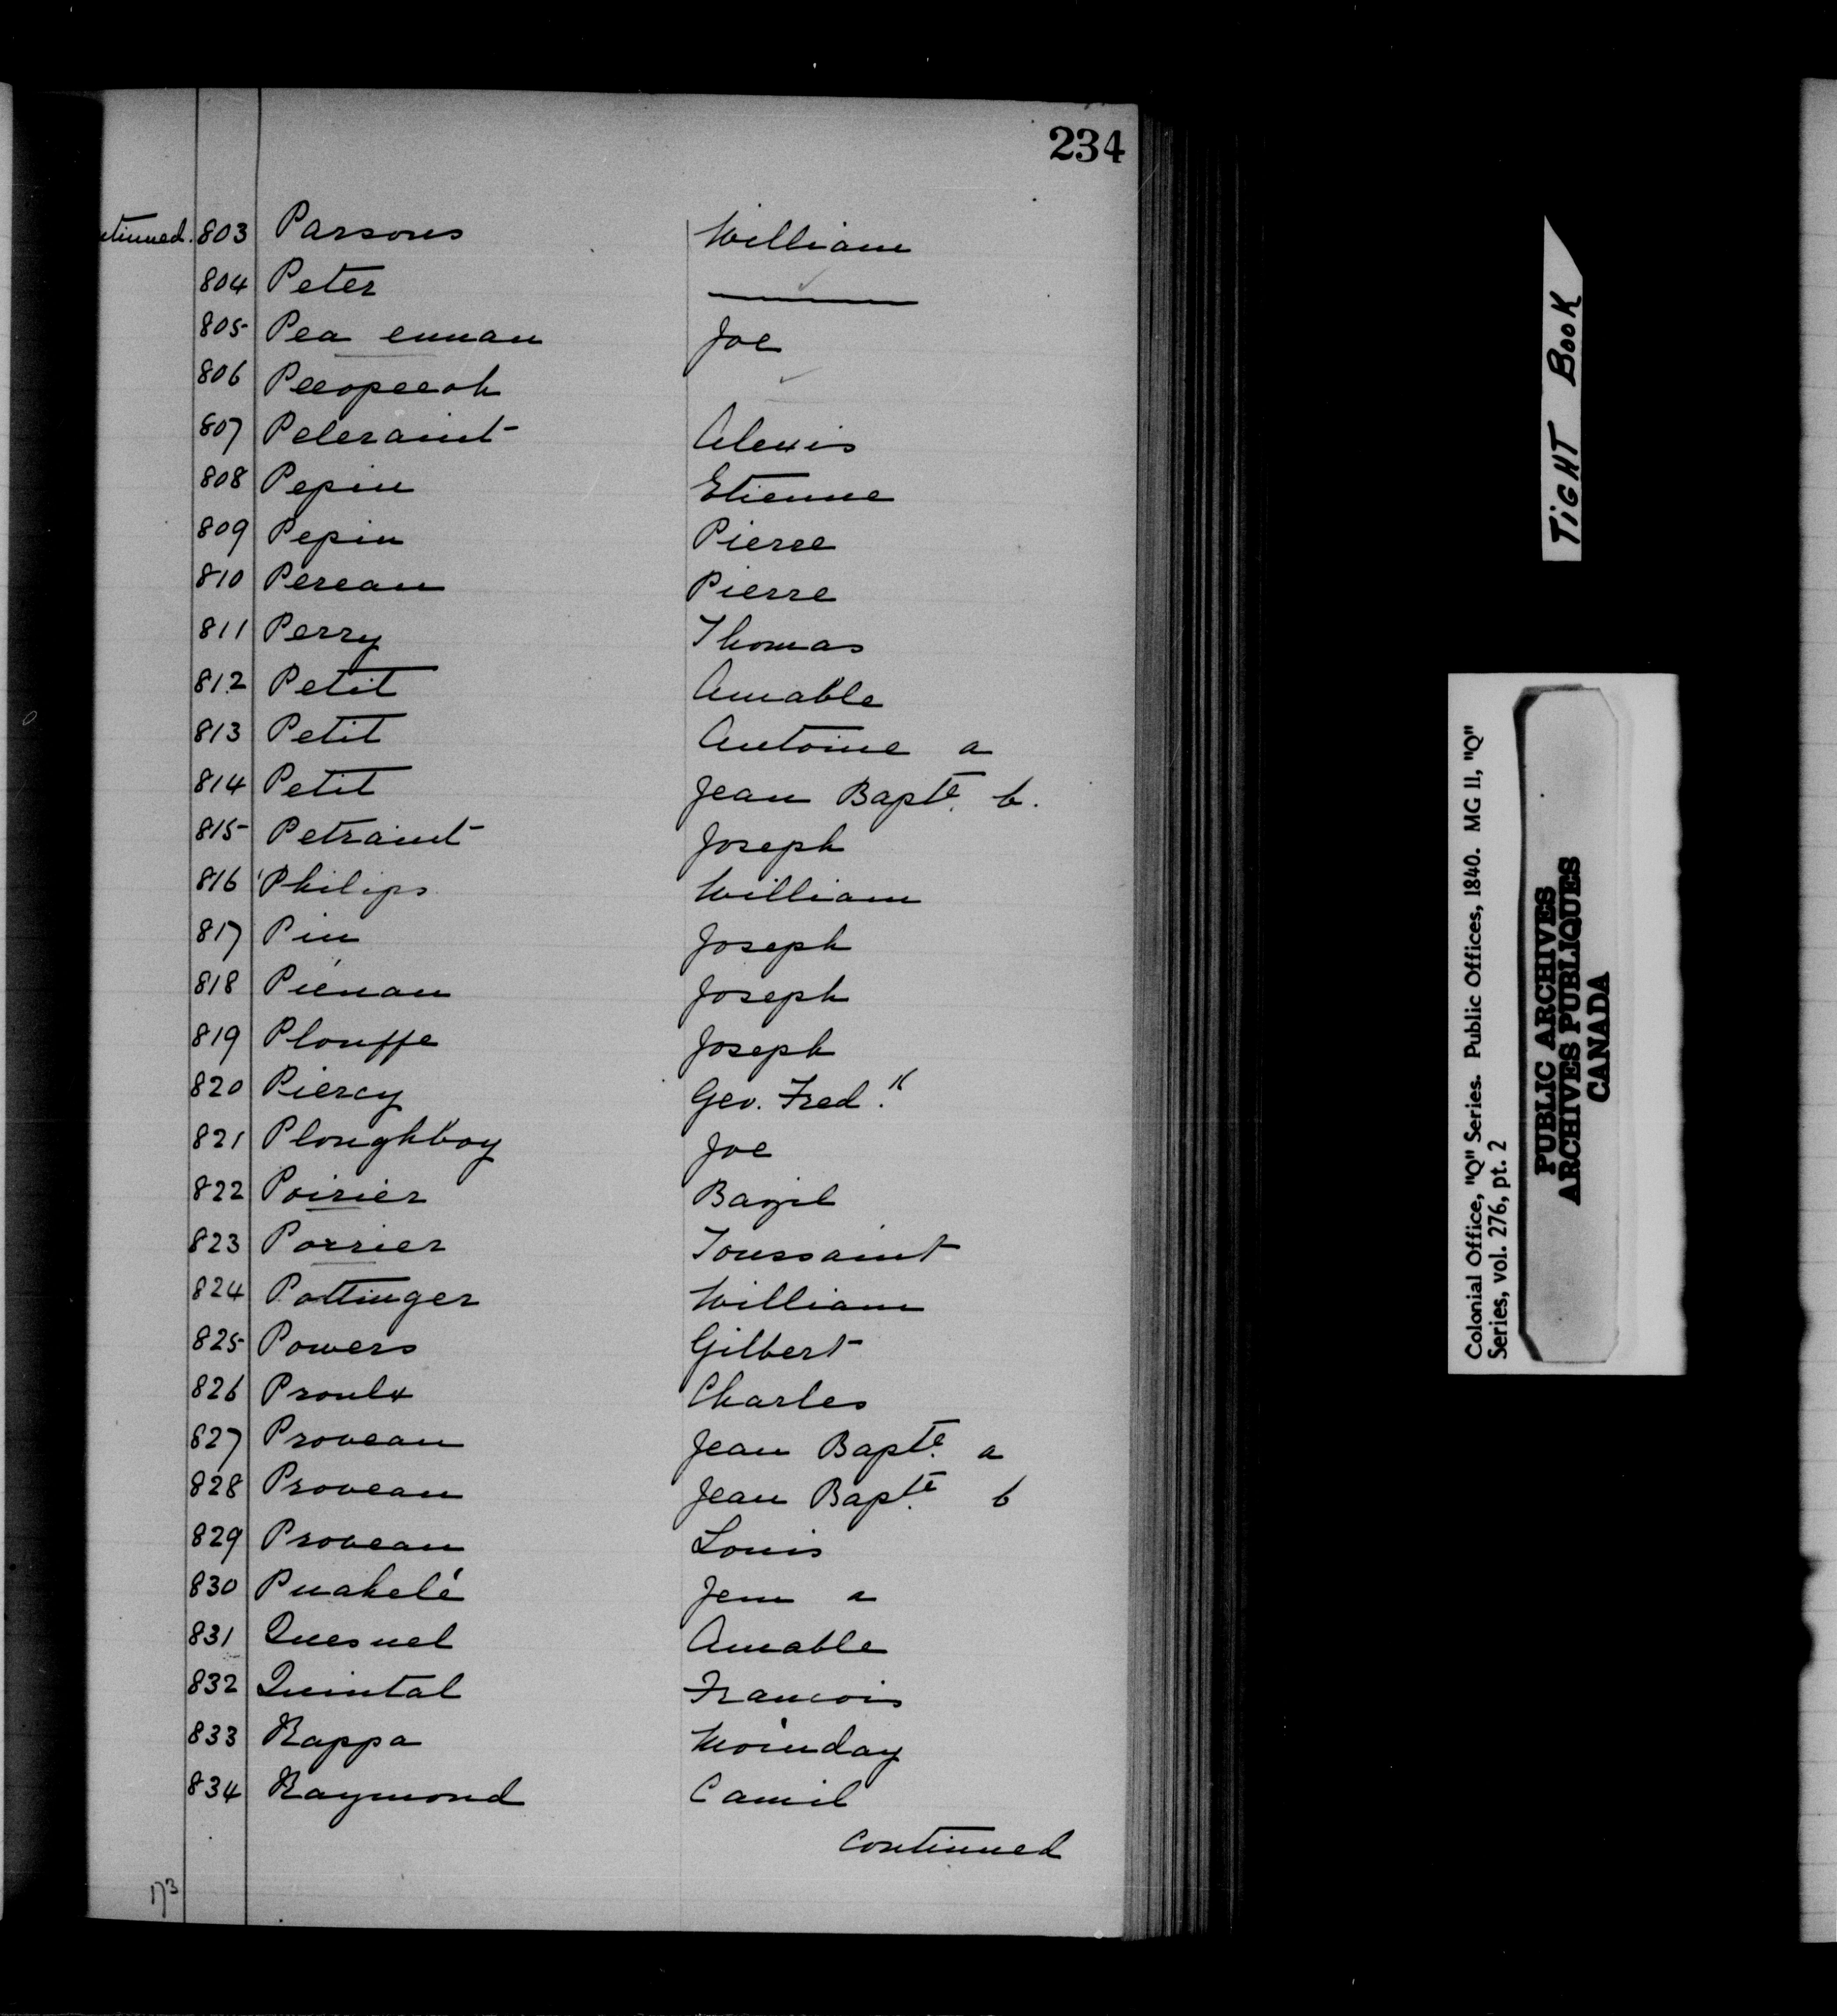 234
tinued. 803 Parsons William
804 Peter ———
805 Pea eunau Joe
806 Peeopeeoh
807 Peleraint Alexis
808 Pepin Etienne
809 Pepin Pierre
810 Pereau Pierre
811 Perry Thomas
812 Petit Amable
813 Petit Antoine a
814 Petit Jean Bapte. b.
815 Petraint Joseph
816 Philips William
817 Pin Joseph
818 Piénau Joseph
819 Plouffe Joseph
820 Piercy Geo. Fred.k
821 Ploughboy Joe
822 Poirier Bazil
823 Porrier Toussaint
824 Pottinger William
825 Powers Gilbert
826 Proulx Charles
827 Proveau Jean Bapte. a
828 Proveau Jean Bapte. b
829 Proveau Louis
830 Puakelé Jem a
831 Quesnel Amable
832 Quintal Francois
833 Rappa Moinday
834 Raymond Camil
continued
173
TIGHT BOOK
Colonial Office, "Q" Series. Public Offices, 1840. MG 11, "Q"
Series, vol. 276, pt. 2
PUBLIC ARCHIVES
ARCHIVES PUBLIQUES
CANADA